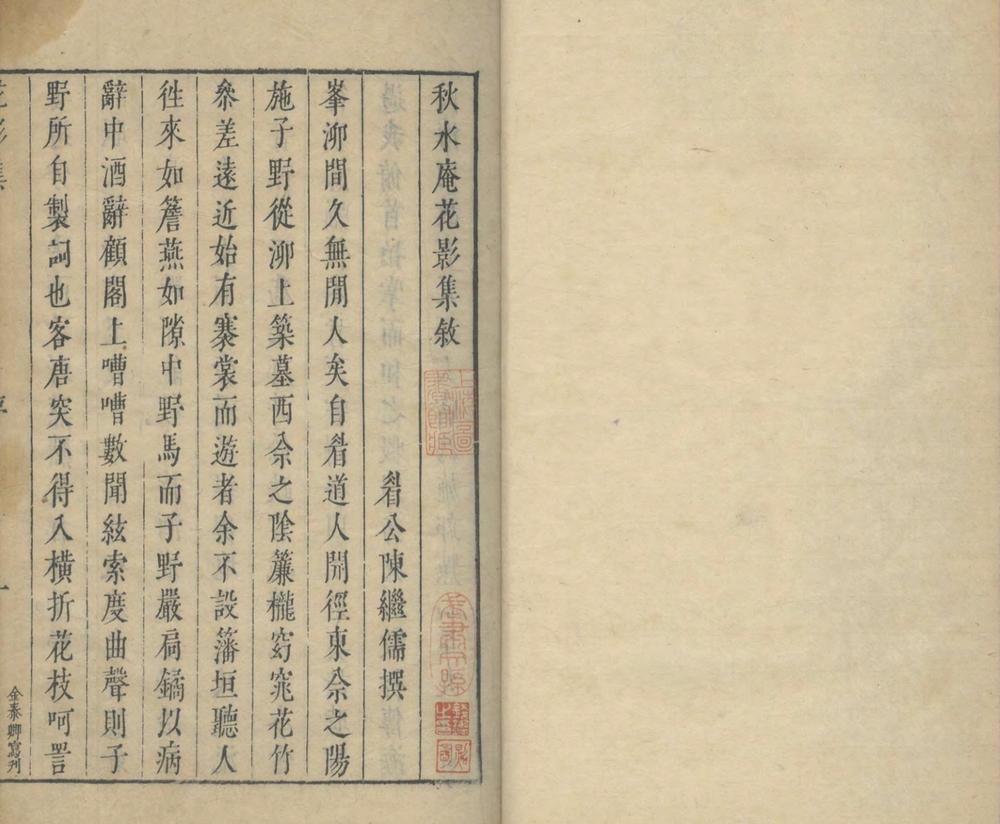 秋水庵花影集敘
眷公陳繼儒撰
峯泖間久無閒人矣自眷道人開徑東佘之陽
施子野從泖上築墓西佘之陰簾櫳窈窕花竹
叅差遠近始有褰裳而遊者余不設藩垣聽人
徃來如簷燕如隙中野馬而子野嚴扃鐍以病
辭中酒辭顧閣上嘈嘈數聞絃索度曲聲則子
野所自製詞也客唐突不得入橫折花枝呵詈
花影集
一
金泰卿寫刋